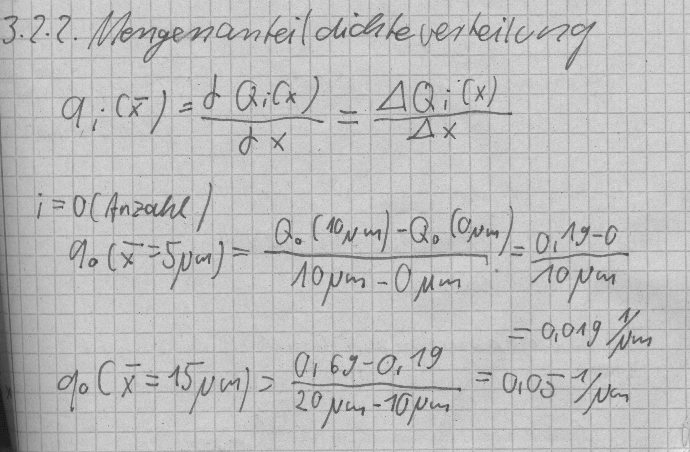 3.2.2. Mengenanteildichteverteilung
q_i (x̄) = d Q_i(x) / d x = ΔQ_i(x) / Δx
i = 0 (Anzahl)
q_0 (x̄ = 5µm) = Q_0 (10µm) - Q_0 (0µm) / 10µm - 0µm = 0,19-0 / 10µm
= 0,019 1/µm
q_0 (x̄ = 15µm) = 0,69-0,19 / 20µm - 10µm = 0,05 1/µm